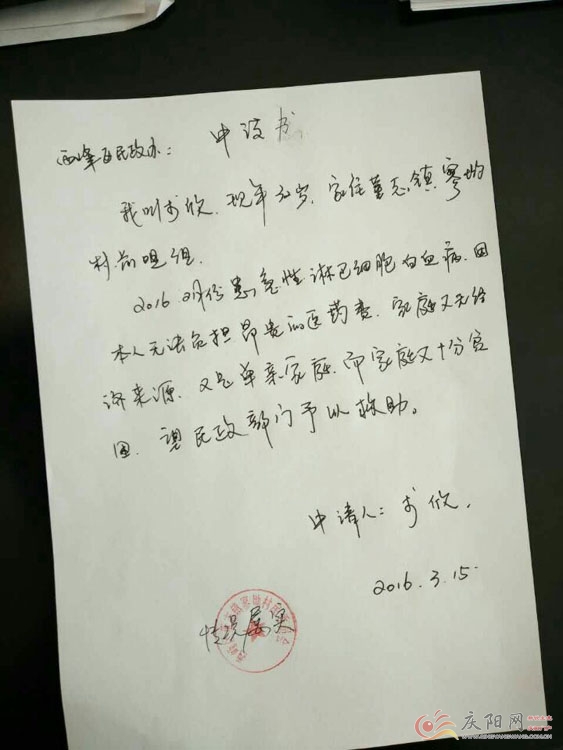 申请书
西峰区民政办:
我叫李欣.现年20岁.家住董志镇寥坳
村前咀组.
2016.2月份患急性淋巴细胞白血病.因
本人无法负担昂贵的医药费.家庭又无经
济来源.又是单亲家庭.而家庭又十分贫
困.望民政部门予以救助。
申请人:李欣.
2016.3.15.
情况属实
庆阳网